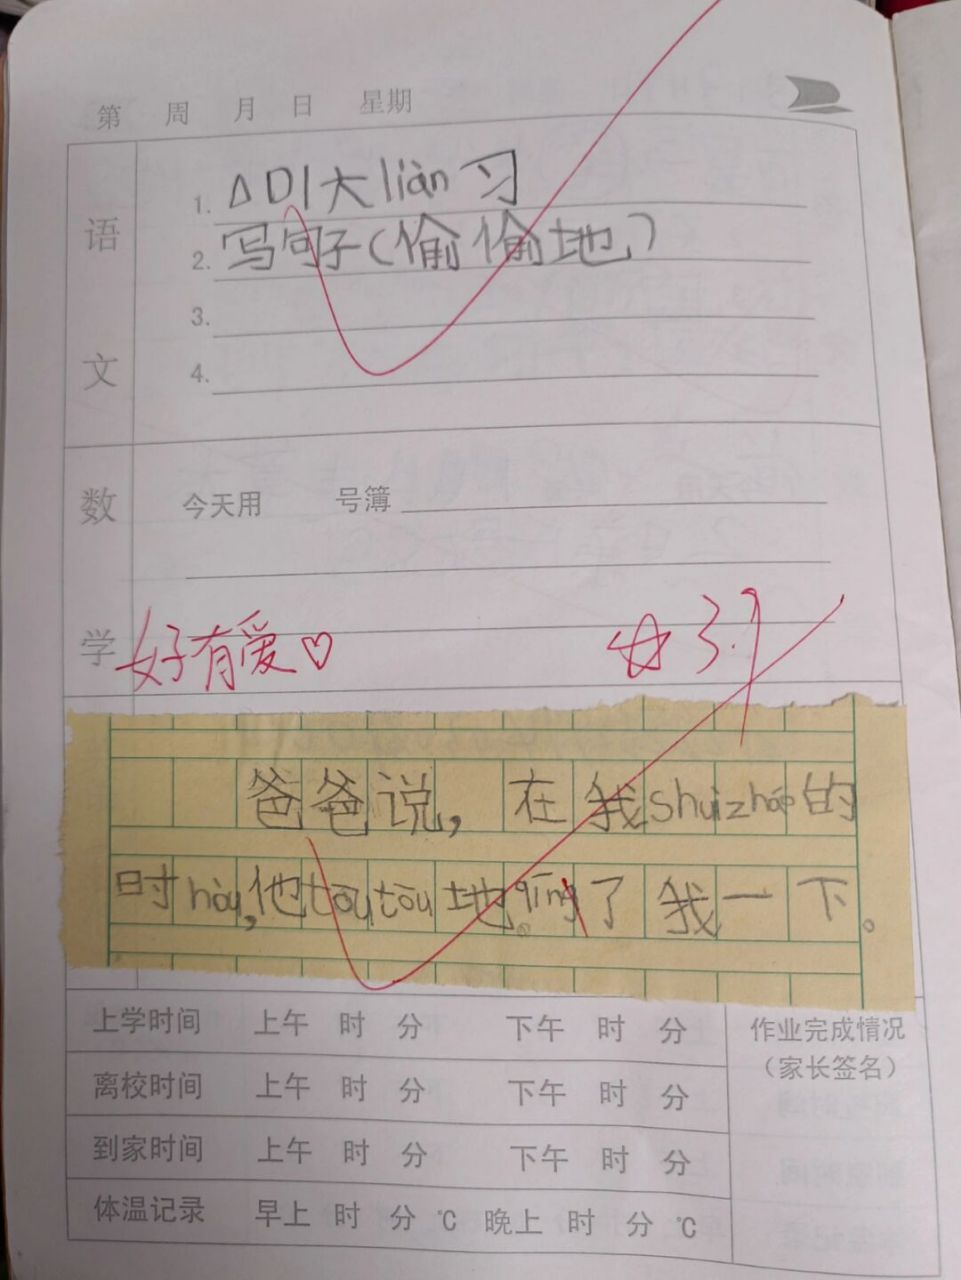 第 周 月 日 星期
语文
1. △口大liàn习
2. 写句子(偷偷地)
3.
4.
数学
今天用 号簿
好有爱♡
☆ 3.9
爸爸说，在我shuìzháo的
时hòu,他tōutōu地qīng了我一下。
上学时间 上午 时 分 下午 时 分
作业完成情况
（家长签名）
离校时间 上午 时 分 下午 时 分
到家时间 上午 时 分 下午 时 分
体温记录 早上 时 分 ℃ 晚上 时 分 ℃